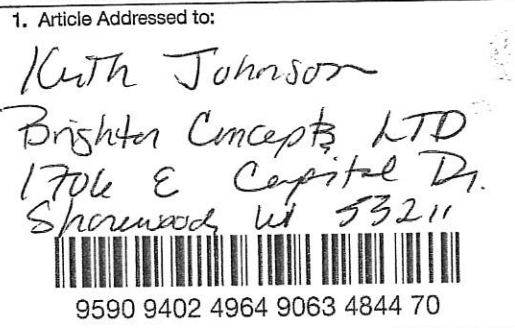 1. Article Addressed to:
Keith Johnson
Brighter Concepts LTD
1706 E Capitol Dr.
Shorewood, WI 53211
9590 9402 4964 9063 4844 70